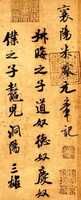 襄陽米黻元章記
晦之子道奴德奴慶奴
僕之子鼇兒洞陽三雄